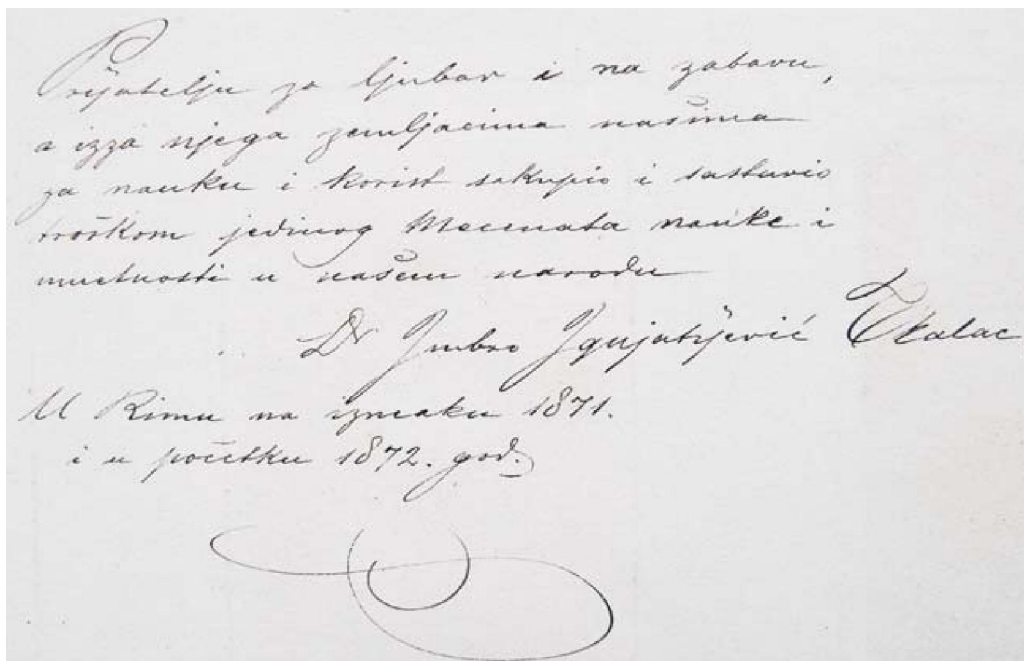 Prijatelju za ljubav i na zabavu,
a izza njega zemljacima našima
za nauku i korist sakupio i sastavio
troškom jedinog Mecenata nauke i
umetnosti u našem narodu
Dr Imbro Ignjatijević Tkalac
U Rimu na izmaku 1871.
i u početku 1872. god.